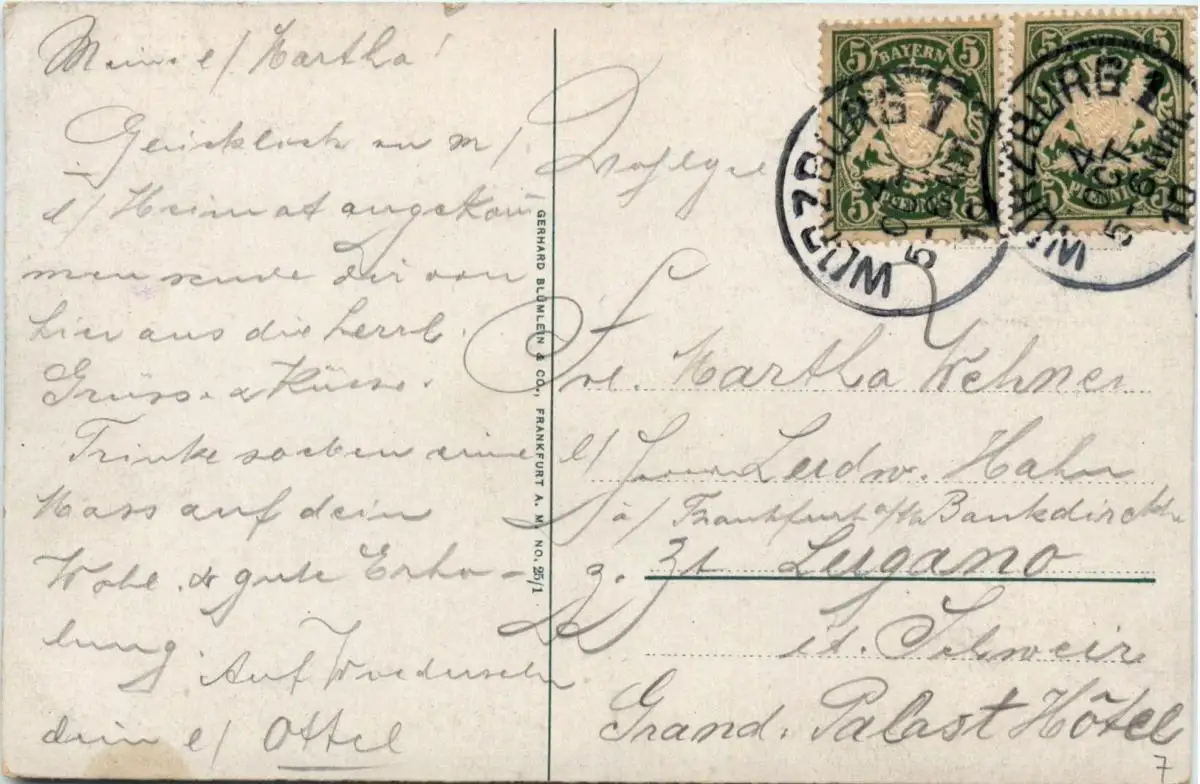 Meine l/ Martha!
Glücklich in m/
l/ Heimat angekom
men sende dir von
hier aus die herzl.
Grüsse & Küsse.
Trinke soeben eine
Mass auf dein
Wohl & gute Erho-
lung. Auf Wiedersehn
dein l/ Ottel
GERHARD BLÜMLEIN & CO., FRANKFURT A. M. NO. 25/1
5 BAYERN 5
5 PFENNIG 5
WÜRZBURG 1
4 OKT
5-6 NM.
10
5 5
5 PFENNIG
WÜRZBURG 1
4 OKT
5-6 NM.
10
Wohlgb
Frl. Martha Wehner
b/ Herrn Ludw. Hahn
a/ Frankfurt a/M Bankdirektor
z. Zt Lugano
it. Schweiz
Grand. Palast Hôtel
7